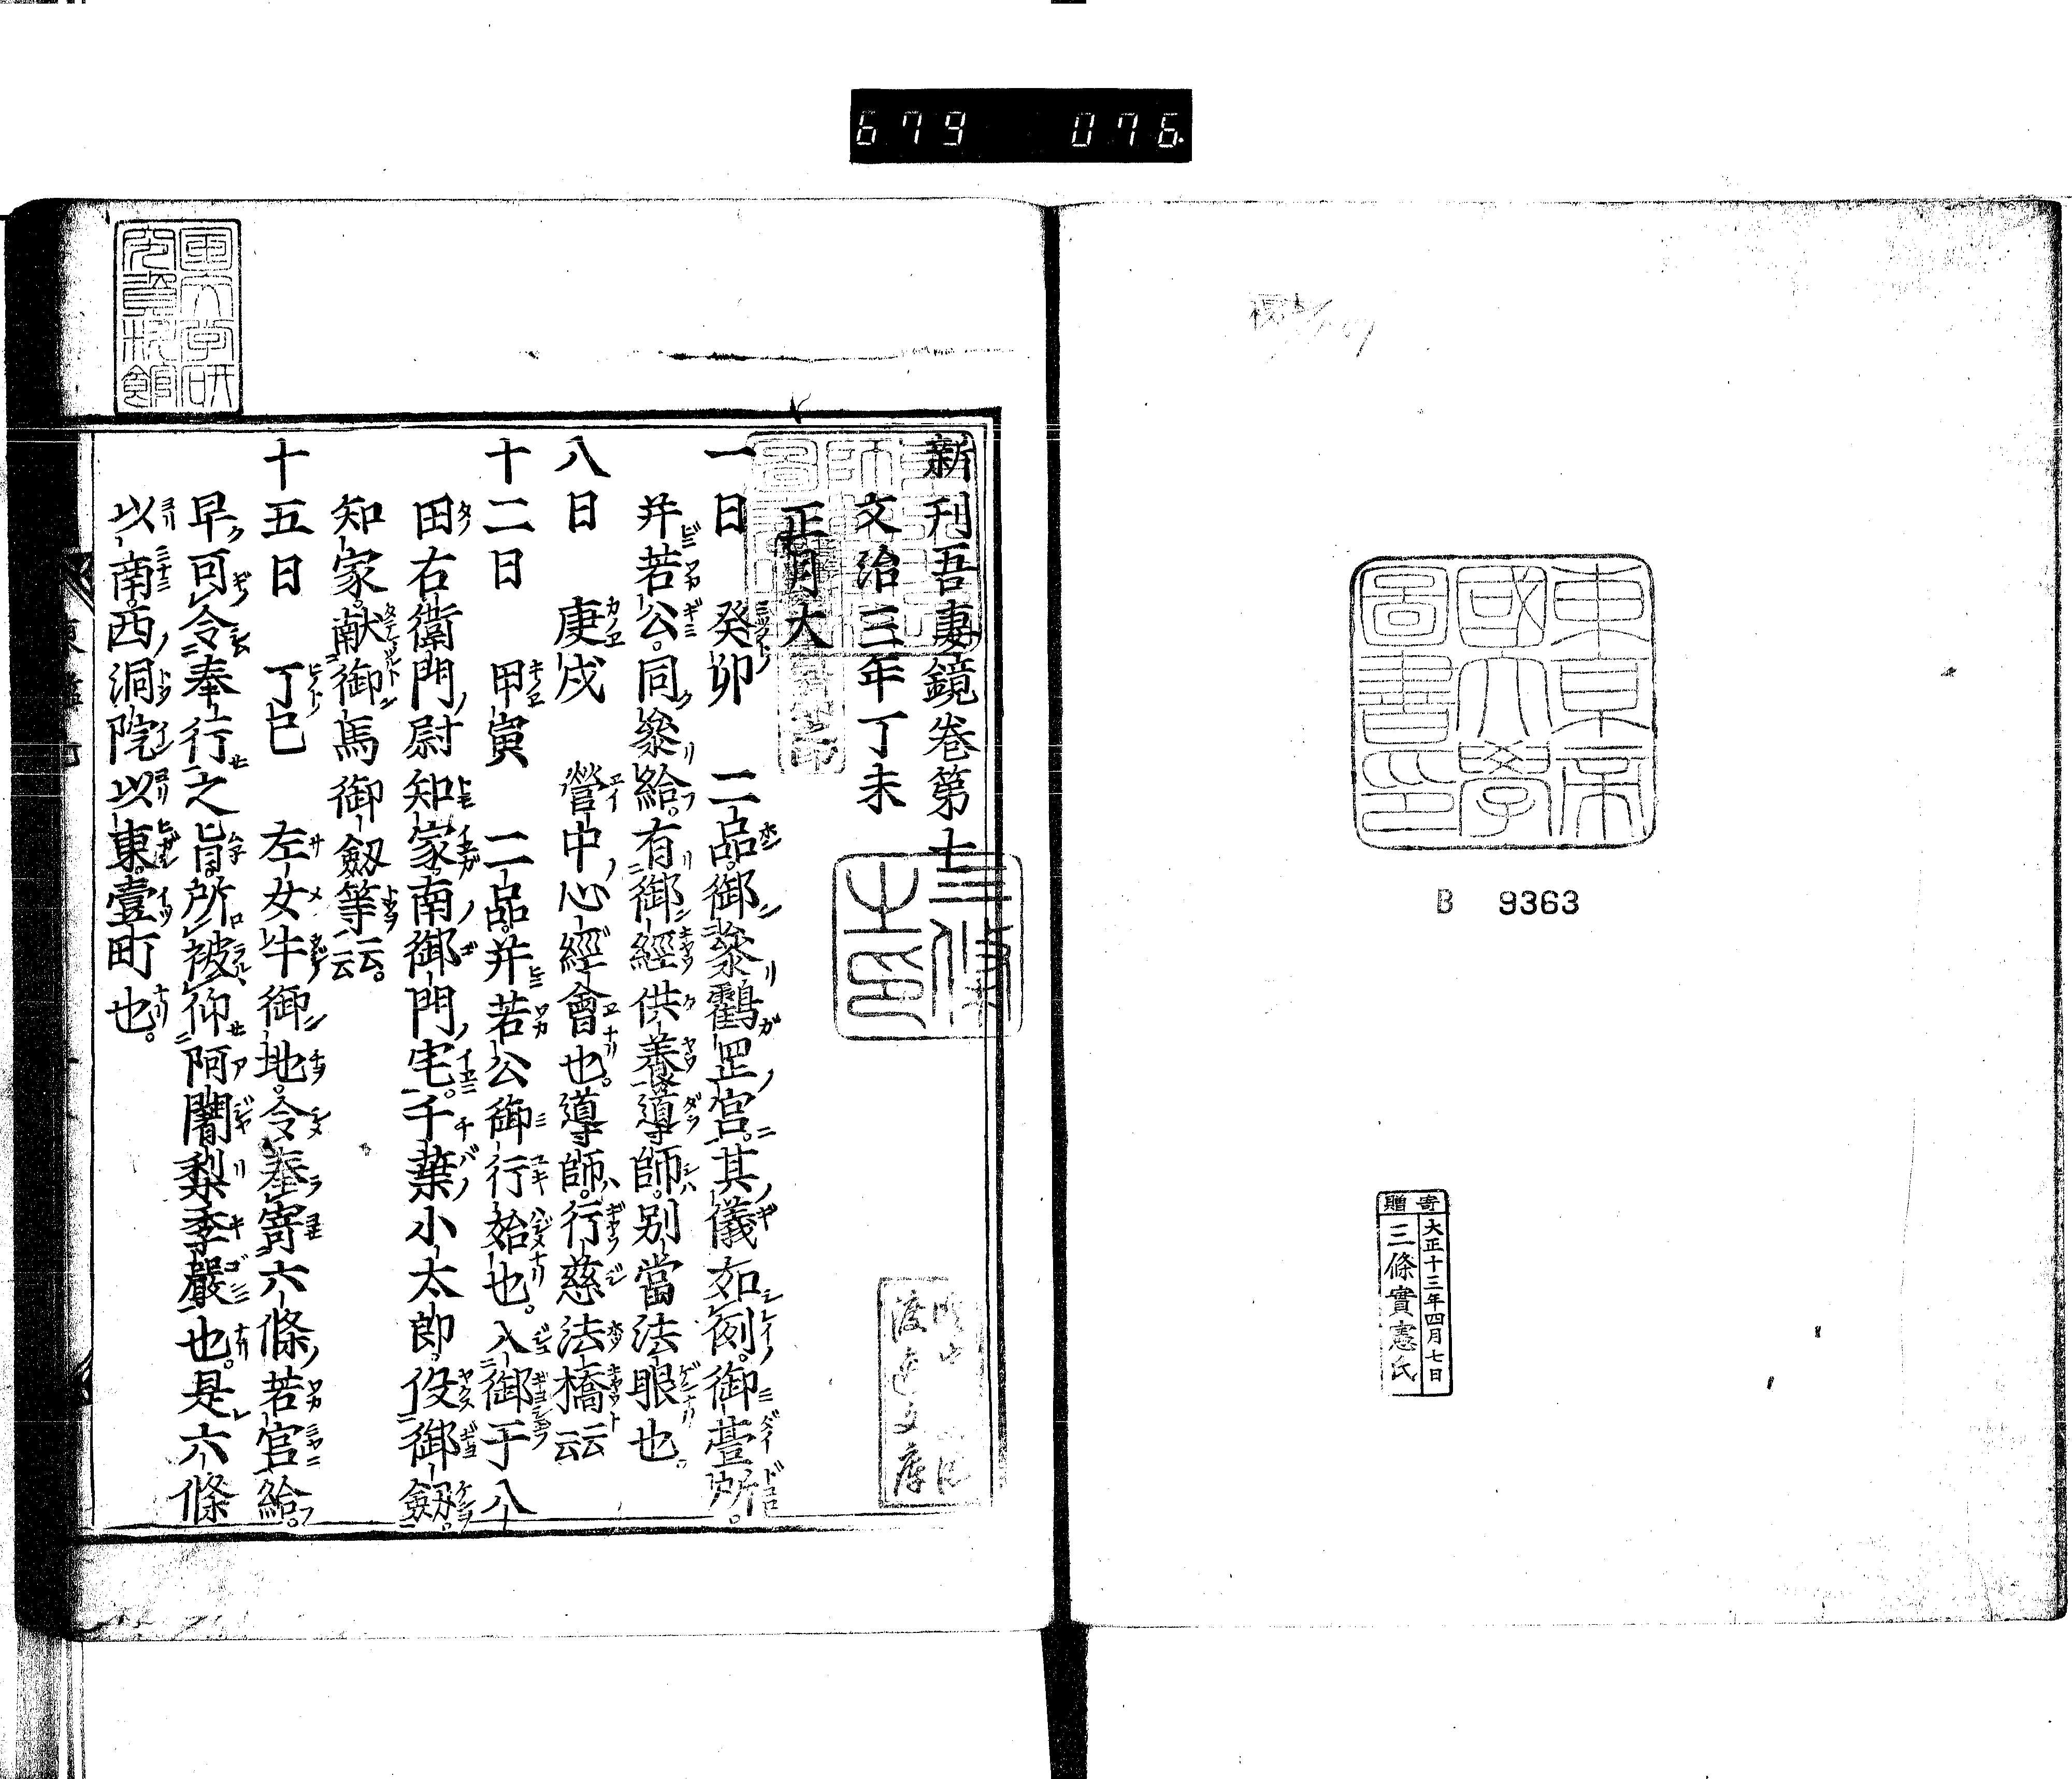 679 076
東京帝
國大學
圖書印
B 9363
寄贈
大正十三年四月七日
三條實憲氏
新刊吾妻鏡巻第七
文治三年丁未
正月大
一日 癸卯 二品。御參鸖罡宮。其儀如例。御臺所。
并若公。同參給。有御經供養導師。別當法眼也。
八日 庚戌 營中心經會也。導師。行慈法橋云云
十二日 甲寅 二品。并若公御行始也。入御于八
田右衞門尉知家南御門宅。千葉小太郎。役御劔。
知家。獻御馬御劔等云云。
十五日 丁巳 左女牛御地。令奉寄六條若宮給。
早可令奉行之旨。所被仰阿闍梨季嚴也。是六條
以南。西洞院以東。壹町也。
国文学研
究資料館